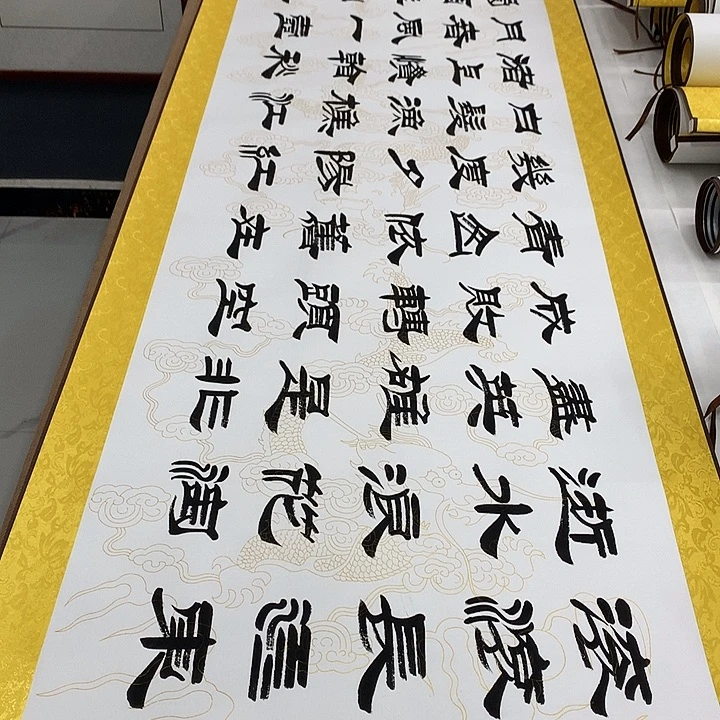 滾滾長江東
逝水浪花淘
盡英雄是非
成敗轉頭空
青山依舊在
幾度夕陽紅
白髮漁樵江
渚上慣看秋
月春風一壺